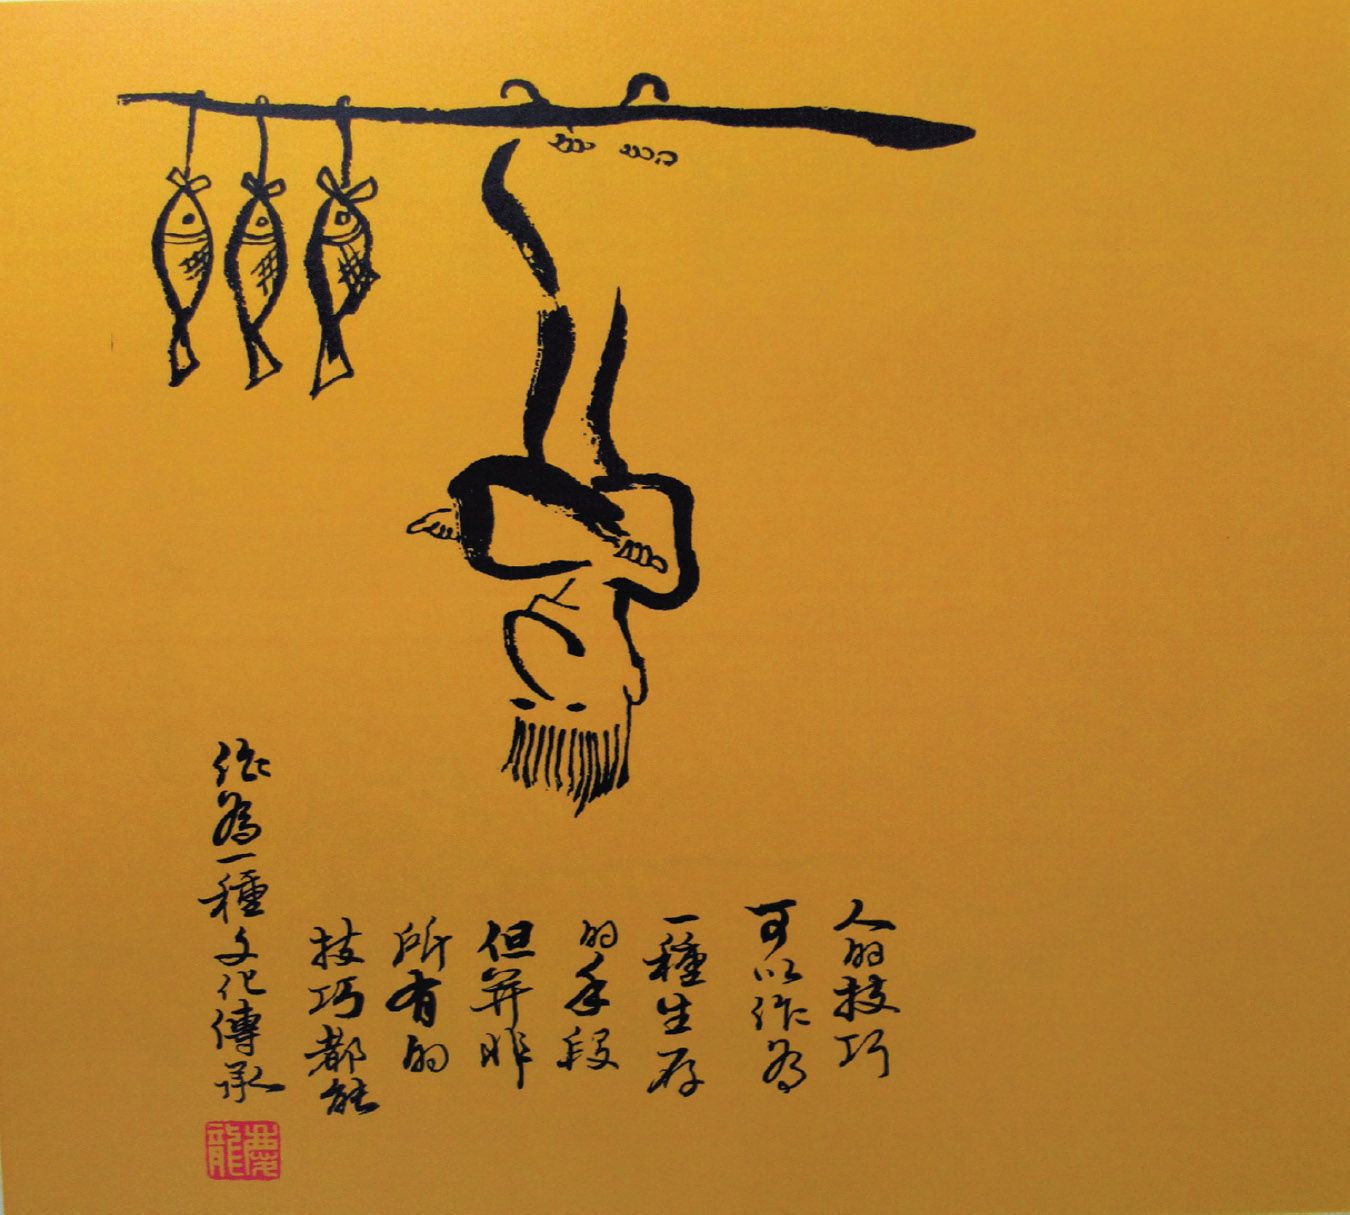 人的技巧
可以作為
一種生存
的手段
但并非
所有的
技巧都能
作為一種文化傳承
慶龍